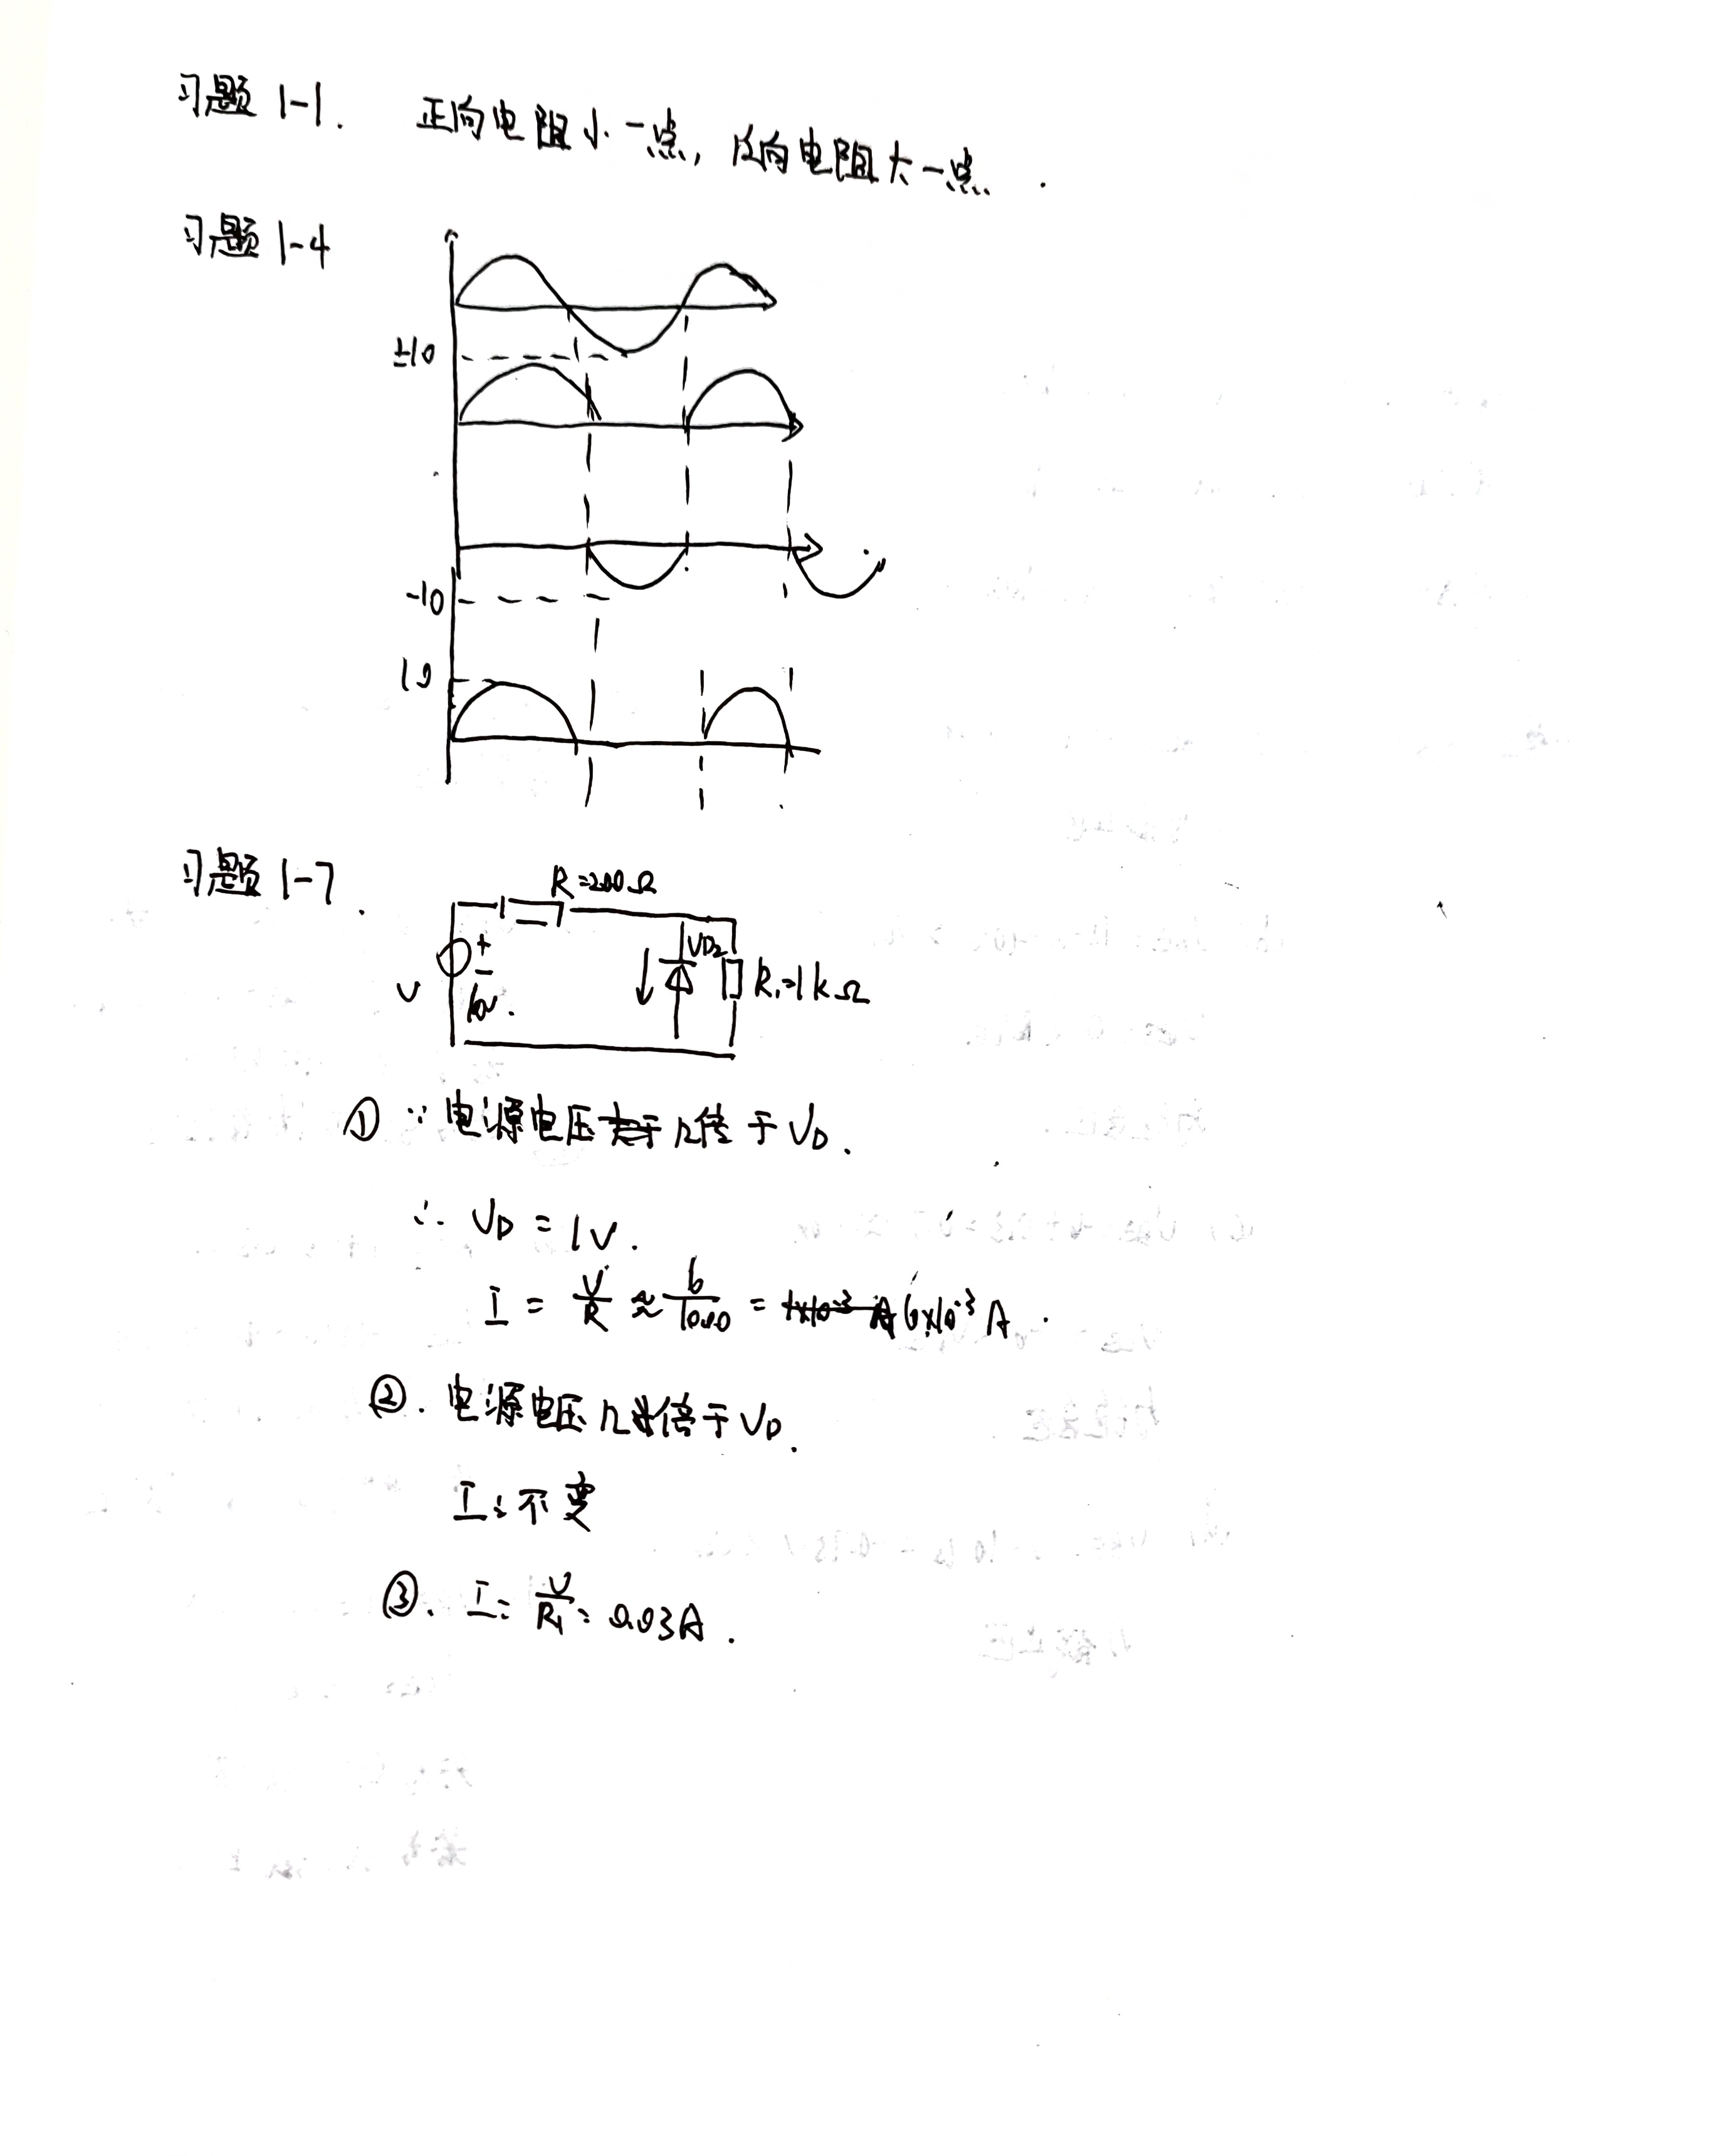 习题 1-1. 正向电阻小一点, 反向电阻大一点.
习题 1-4
±10
-10
10
习题 1-7.
R=200Ω
+
-
10V.
U
VDz
R₁=1kΩ
① ∵ 电源电压 几倍于 UD.
∴ UD = 1V.
I = U/R ≈ 6/1000 = 6×10⁻³A.
②. 电源电压几倍于 UD.
I: 不变
③. I = U/R₁ = 0.03A.